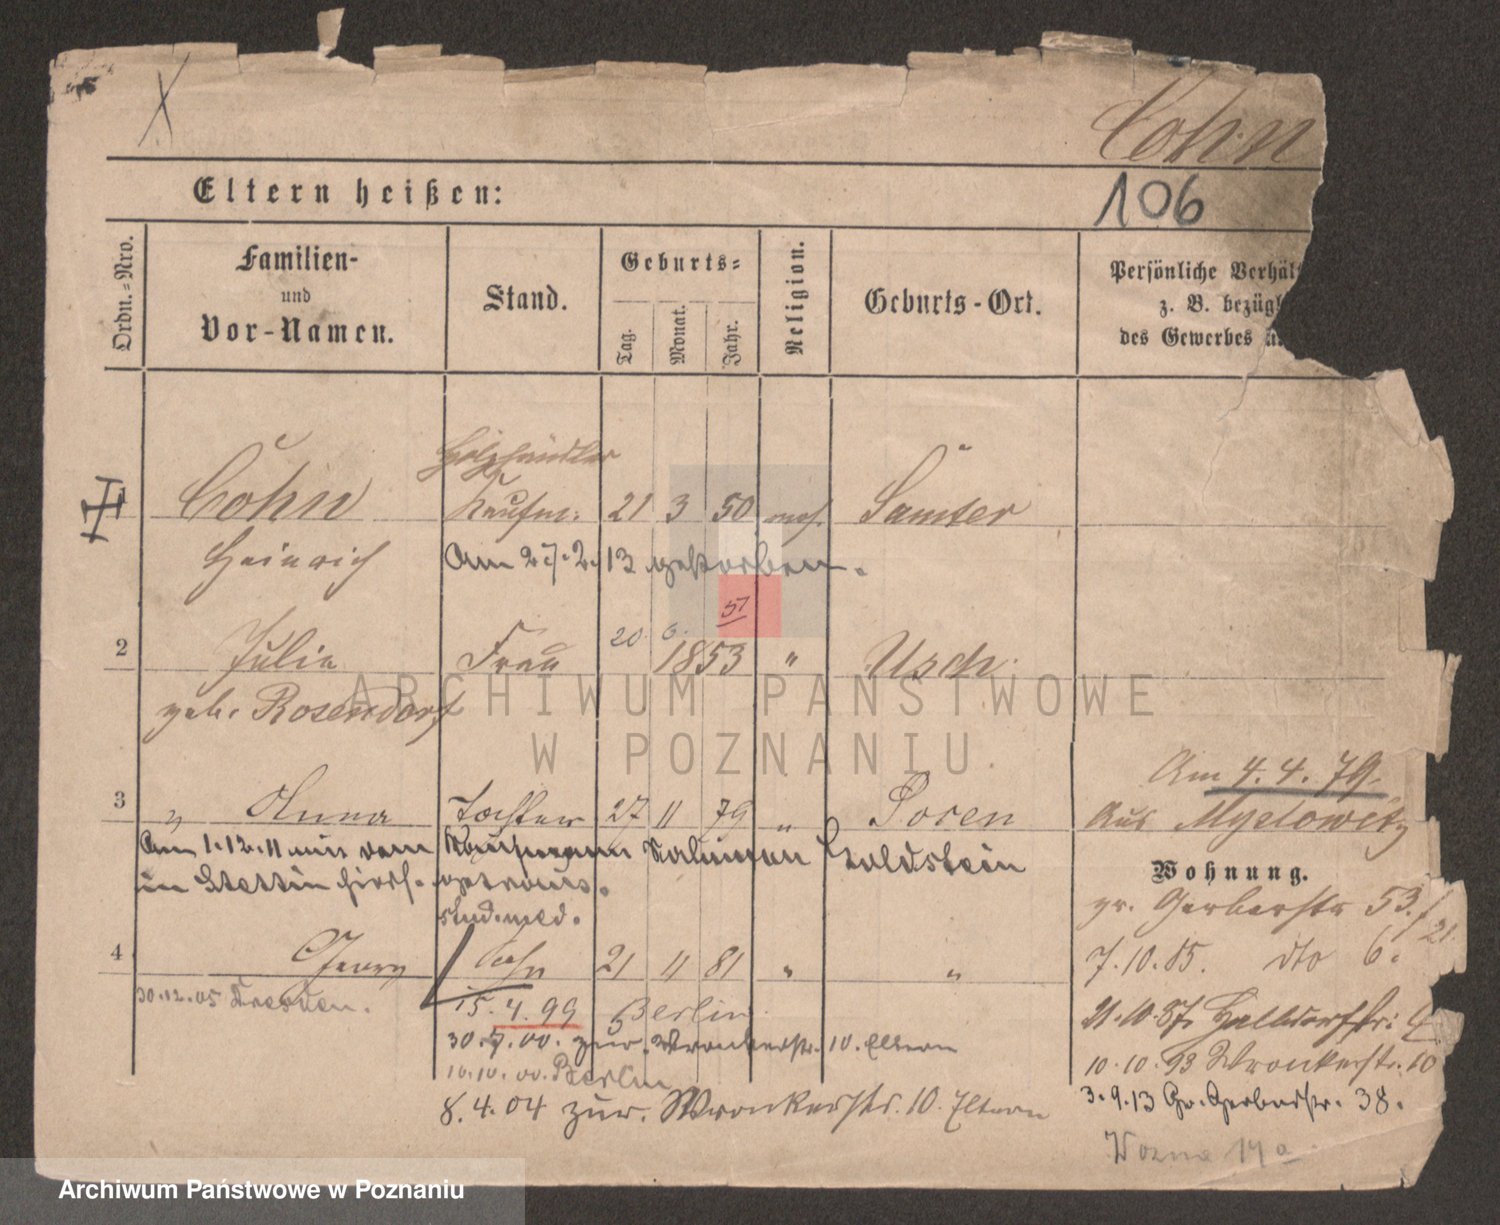 Cohn
Eltern heißen:
106
Ordn.=Nro.
Familien-
und
Vor-Namen.
Stand.
Geburts=
Tag.
Monat.
Jahr.
Religion.
Geburts-Ort.
Persönliche Verhält
z. B. bezügl
des Gewerbes
Holzhändler
1 Cohn Kaufm. 21 3 50 mos. Samter
Heinrich Am 27.2.13 gestorben.
57
20. 6.
2 Julie Frau 1853 " Usch.
geb. Rosendorf
ARCHIWUM PAŃSTWOWE
W POZNANIU
Am 4.4.79.
3 " Anna Tochter 27 11 79 " Posen
Aus Myslowitz
Am 1.12.11 mit dem Kaufmann Salomon Goldstein
in Stettin getraut.
Wohnung.
gr. Gerberstr 53.
stud. med.
4 Georg Sohn 21 11 81 " "
7.10.85. dto 6.
30.12.05 Dresden.
15.4.99 Berlin
21.10.87. Halbdorfstr:
30.7.00. zur. Wronkerstr. 10. Eltern
10.10.00. Berlin
10.10.93 Wronkerstr. 10
8.4.04 zur. Wronkerstr. 10. Eltern
3.9.13 Gr. Gerberstr. 38.
Wozna 14a
Archiwum Państwowe w Poznaniu